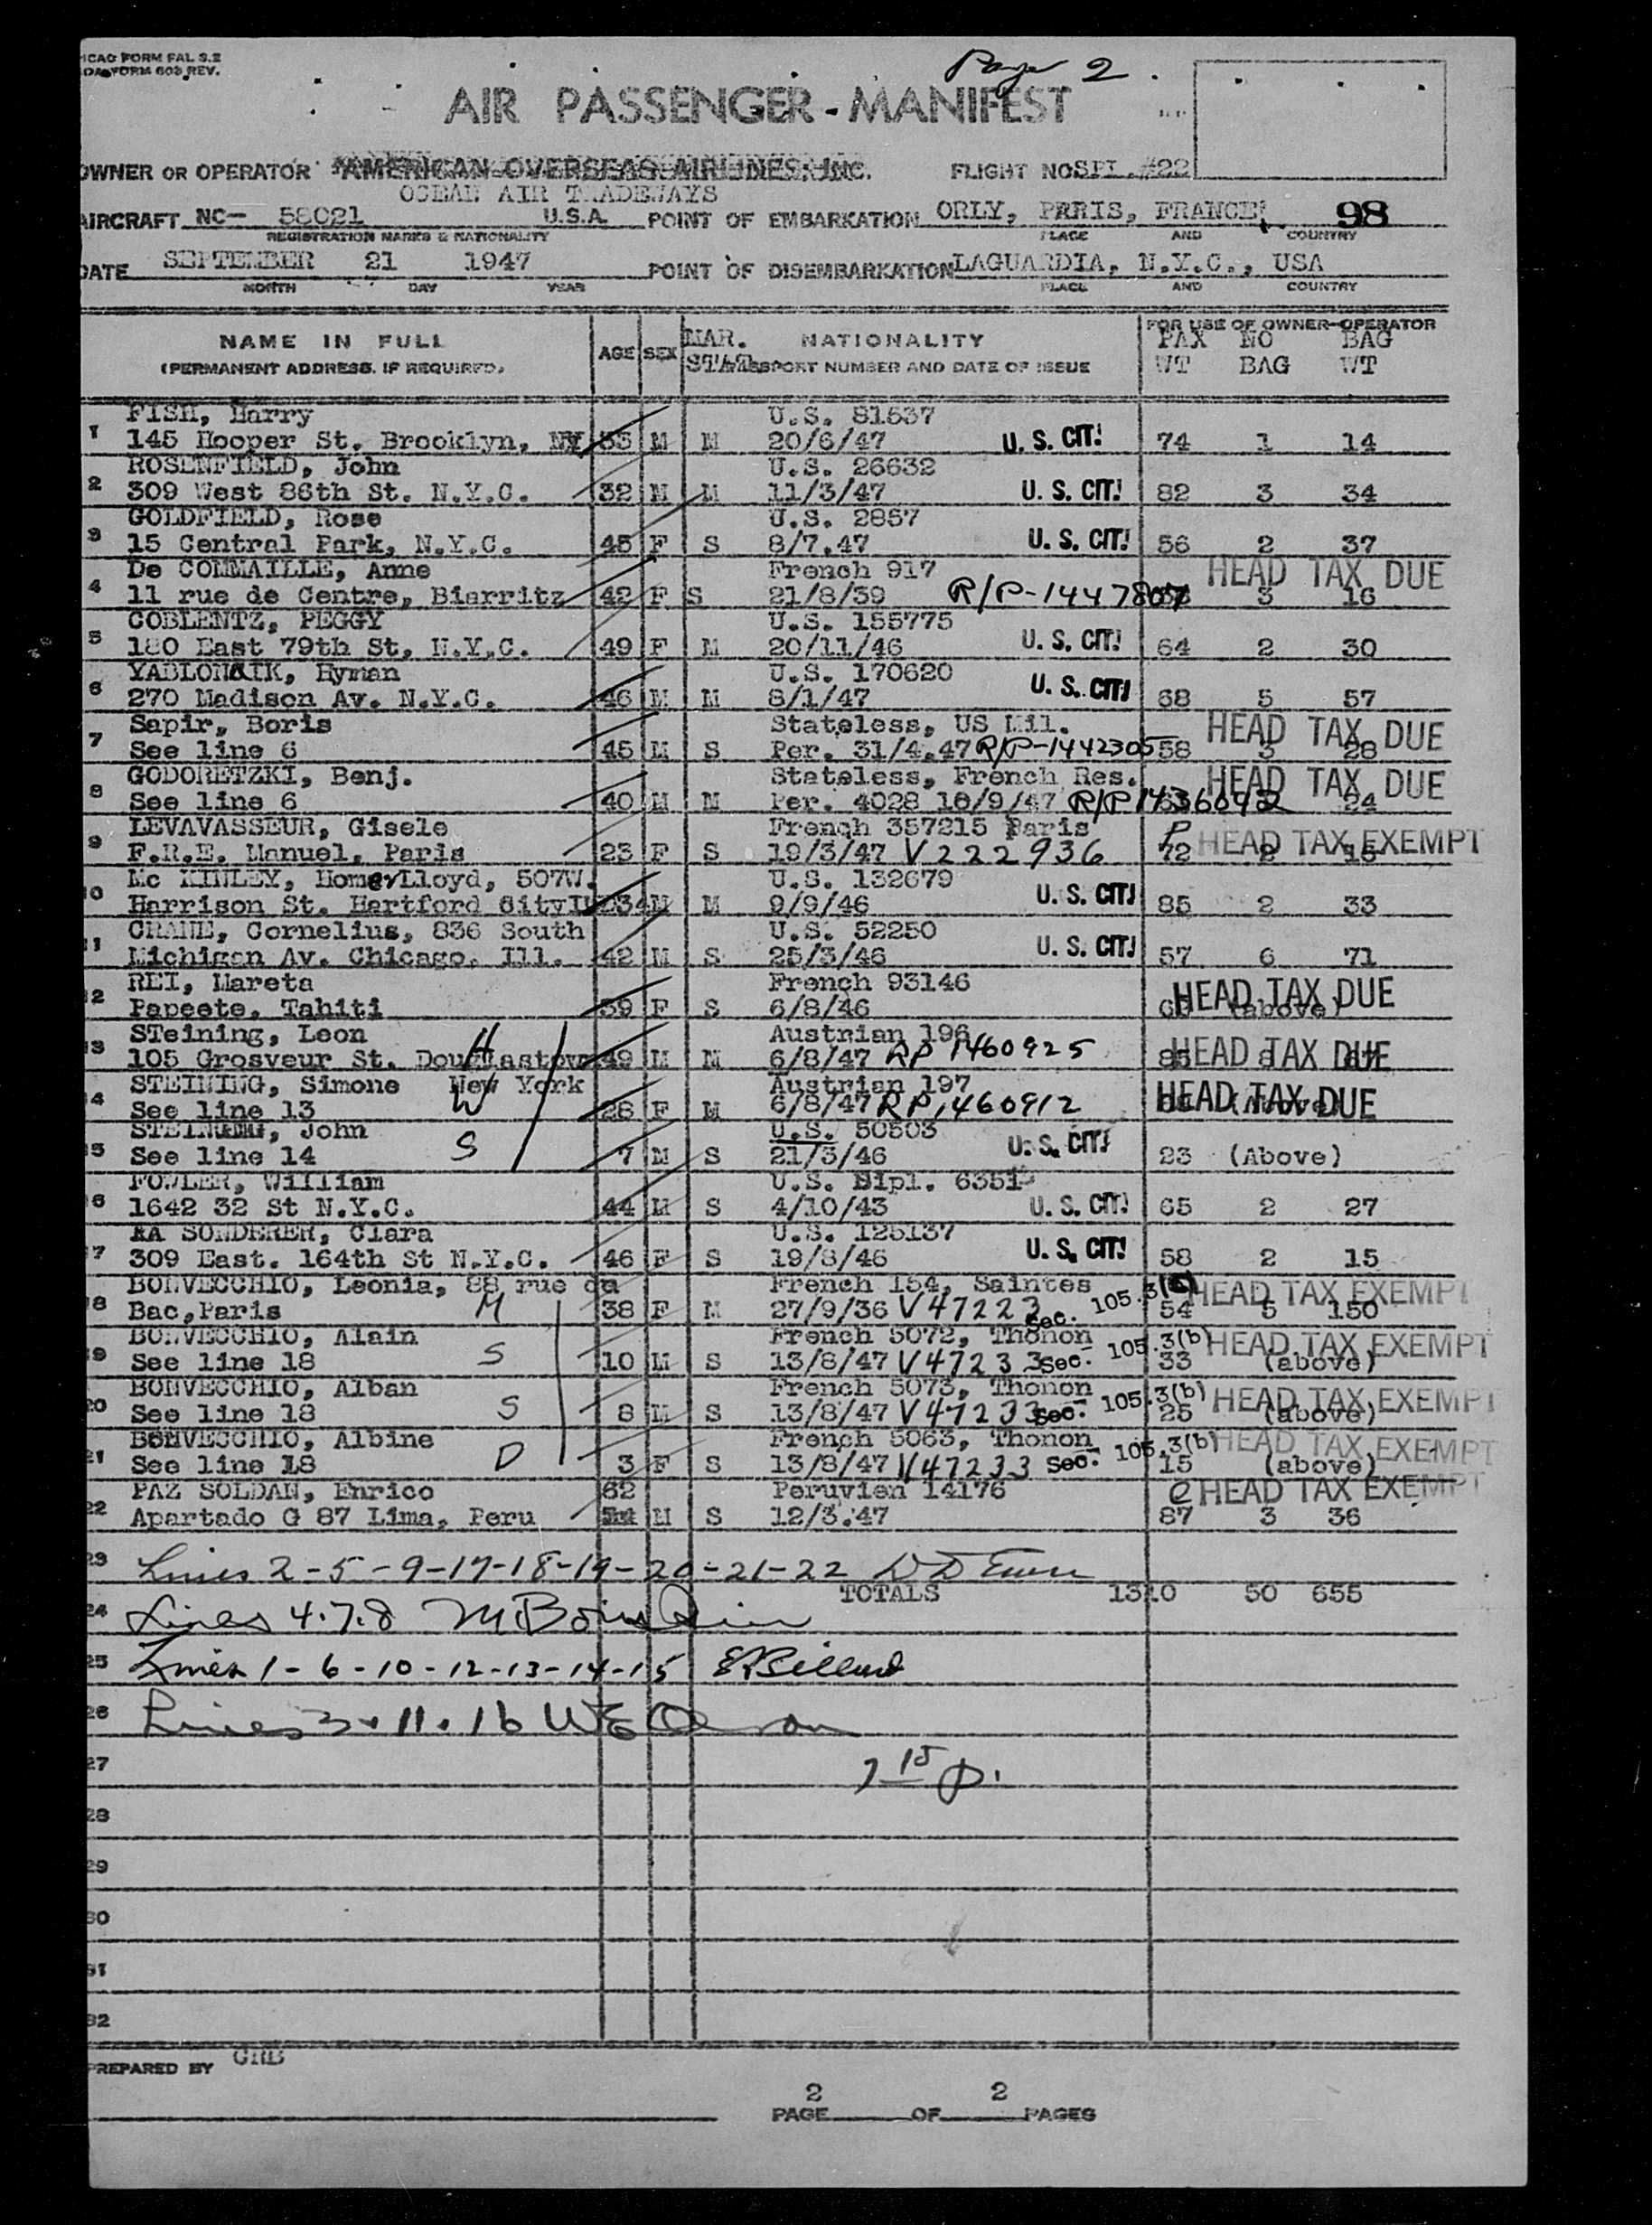 ICAO FORM FAL S.2
FORM 603 REV.
Page 2.
AIR PASSENGER - MANIFEST
OWNER OR OPERATOR AMERICAN OVERSEAS AIRLINES, INC. FLIGHT NO SPL. #22
OCEAN AIR TRADEWAYS
AIRCRAFT NC- 58021 U.S.A. POINT OF EMBARKATION ORLY, PRRIS, FRANCE 98
REGISTRATION MARKS & NATIONALITY PLACE AND COUNTRY
DATE SEPTEMBER 21 1947 POINT OF DISEMBARKATION LAGUARDIA, N.Y.C., USA
MONTH DAY YEAR PLACE AND COUNTRY
NAME IN FULL AGE SEX MAR. NATIONALITY FOR USE OF OWNER-OPERATOR
PAX NO BAG
(PERMANENT ADDRESS. IF REQUIRED. STAT. PORT NUMBER AND DATE OF ISSUE WT BAG WT
FISH, Harry U.S. 81537
1 145 Hooper St. Brooklyn, NY 35 M M 20/6/47 U. S. CIT! 74 1 14
ROSENFIELD, John U.S. 26632
2 309 West 86th St. N.Y.C. 32 M M 11/3/47 U. S. CIT! 82 3 34
GOLDFIELD, Rose U.S. 2857
3 15 Central Park, N.Y.C. 45 F S 8/7.47 U. S. CIT! 56 2 37
De COMMAILLE, Anne French 917 HEAD TAX DUE
4 11 rue de Centre, Biarritz 42 F S 21/8/39 R/P-1447807 3 16
COBLENTZ, PEGGY U.S. 155775
5 180 East 79th St, N.Y.C. 49 F M 20/11/46 U. S. CIT! 64 2 30
YABLONAIK, Hyman U.S. 170620
6 270 Madison Av. N.Y.C. 46 M M 8/1/47 U. S. CIT! 68 5 57
Sapir, Boris Stateless, US Mil. HEAD TAX DUE
7 See line 6 45 M S Per. 31/4.47 R/P-1442305 58 3 28
GODORETZKI, Benj. Stateless, French Res. HEAD TAX DUE
8 See line 6 40 M M Per. 4028 18/9/47 R/P 1436092 24
LEVAVASSEUR, Gisele French 357215 Paris P HEAD TAX EXEMPT
9 F.R.E. Manuel, Paris 23 F S 19/3/47 V222936 72 2 15
Mc KINLEY, Homer Lloyd, 507W. U.S. 132679
10 Harrison St. Hartford City 34 M M 9/9/46 U. S. CIT! 85 2 33
CRANE, Cornelius, 836 South U.S. 52250
11 Michigan Av. Chicago, Ill. 42 M S 25/3/46 U. S. CIT! 57 6 71
REI, Mareta French 93146 HEAD TAX DUE
12 Papeete, Tahiti 39 F S 6/8/46 (above)
STeining, Leon H Austrian 196
13 105 Grosveur St. Douglastown 49 M M 6/8/47 RP 1460925 85 HEAD TAX DUE
STEINING, Simone New York Austrian 197
14 See line 13 W 28 F M 6/8/47 RP 1460912 HEAD TAX DUE
STEINING, John U.S. 50503
15 See line 14 S 7 M S 21/3/46 U. S. CIT! 23 (Above)
FOWLER, William U.S. Dipl. 6351
16 1642 32 St N.Y.C. 44 M S 4/10/43 U. S. CIT! 65 2 27
SONDERER, Clara U.S. 125137
17 309 East. 164th St N.Y.C. 46 F S 19/8/46 U. S. CIT! 58 2 15
BONVECCHIO, Leonia, 88 rue du French 154, Saintes HEAD TAX EXEMPT
18 Bac, Paris M 38 F M 27/9/36 V47223 Sec. 105.3 54 5 150
BONVECCHIO, Alain French 5072, Thonon HEAD TAX EXEMPT
19 See line 18 S 10 M S 13/8/47 V47233 Sec. 105.3(b) 33 (above)
BONVECCHIO, Alban French 5073, Thonon HEAD TAX EXEMPT
20 See line 18 S 8 M S 13/8/47 V47233 Sec. 105.3(b) 25 (above)
BONVECCHIO, Albine French 5063, Thonon HEAD TAX EXEMPT
21 See line 18 D 3 F S 13/8/47 V47233 Sec. 105.3(b) 15 (above)
PAZ SOLDAN, Enrico 62 Peruvien 14176 C HEAD TAX EXEMPT
22 Apartado G 87 Lima, Peru M S 12/3.47 87 3 36
23 Lines 2-5-9-17-18-19-20-21-22
TOTALS 1310 50 655
24 Lines 4.7.8
25 Lines 1-6-10-12-13-14-15
26 Lines 3.11.16
27 7 15 p.
28
29
30
31
32
PREPARED BY GHB
2 2
PAGE OF PAGES